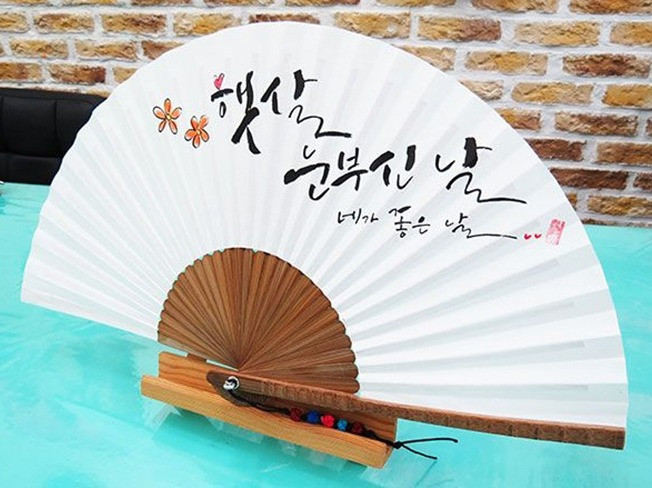 햇살
눈부신 날
네가 좋은 날